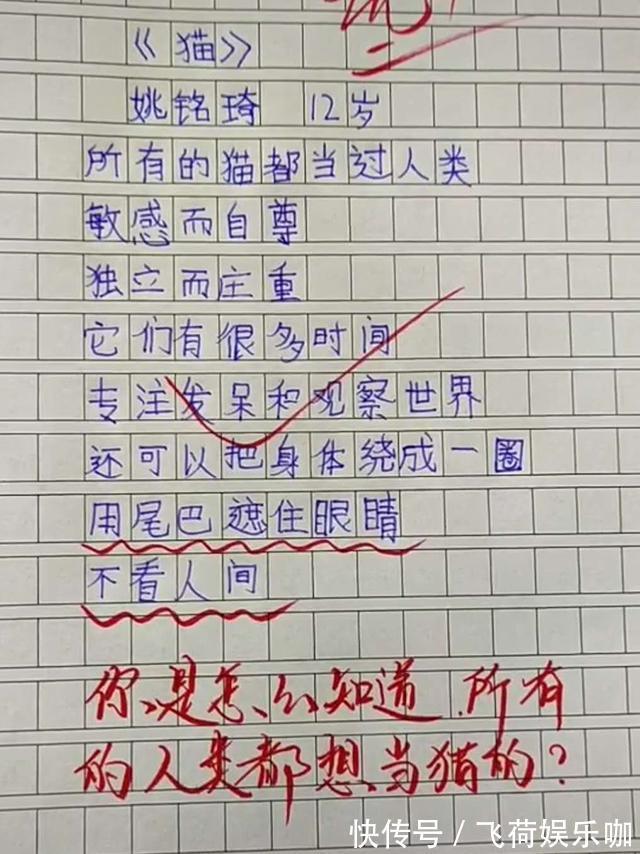 《猫》
姚铭琦 12岁
所有的猫都当过人类
敏感而自尊
独立而庄重
它们有很多时间
专注发呆和观察世界
还可以把身体绕成一圈
用尾巴遮住眼睛
不看人间
你是怎么知道所有
的人类都想当猫的?
快传号/飞荷娱乐咖